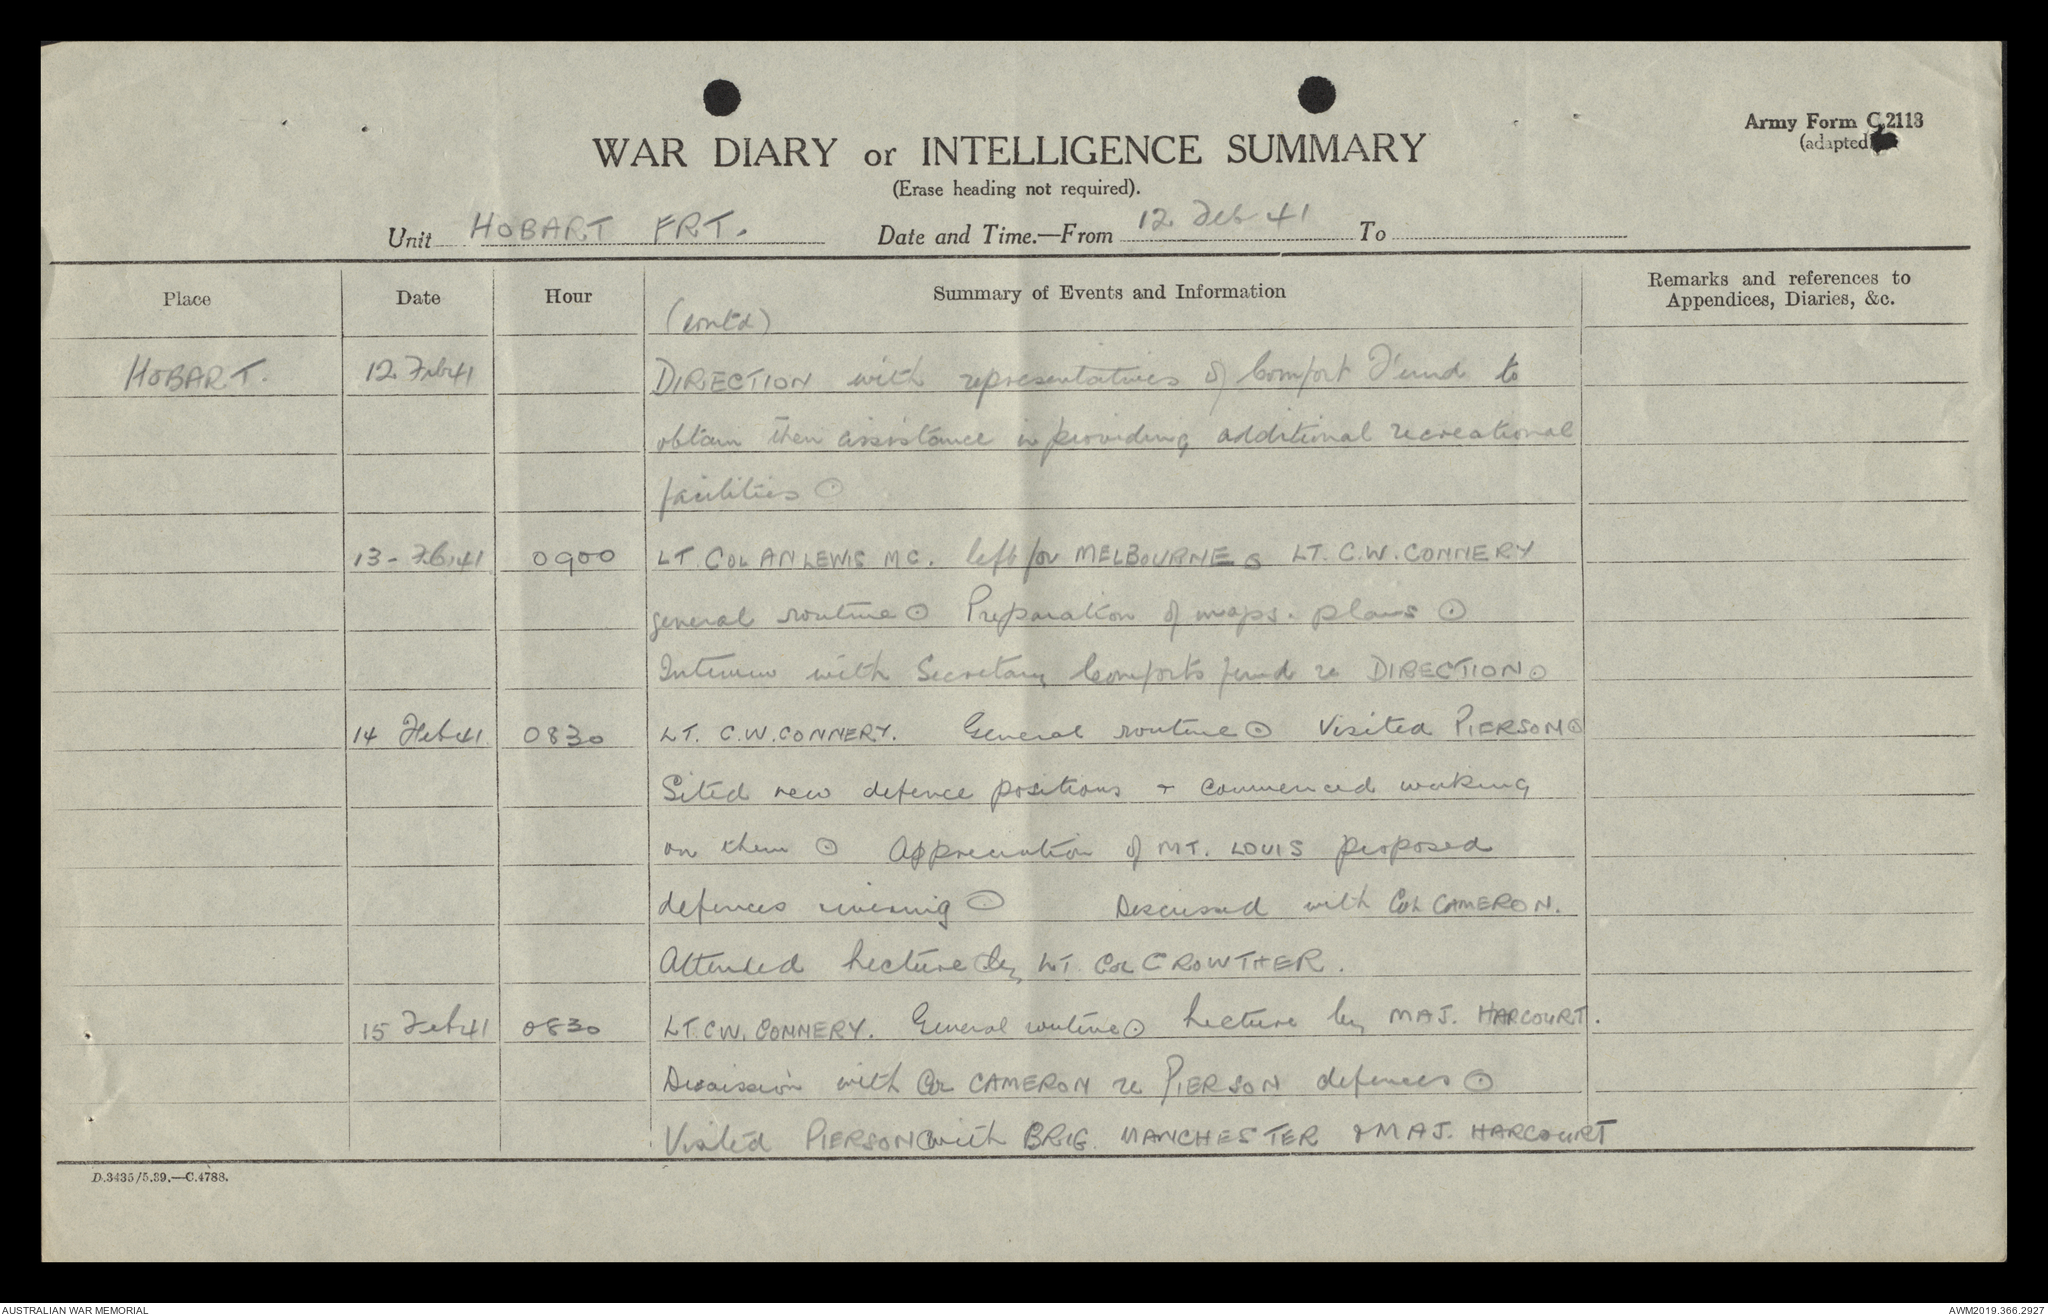 Army Form C.2118
(adapted)
WAR DIARY or INTELLIGENCE SUMMARY
(Erase heading not required).
Unit HOBART FRT. Date and Time.—From 12 Feb 41 To
Place Date Hour Summary of Events and Information Remarks and references to Appendices, Diaries, &c.
(contd)
HOBART. 12 Feb 41 DIRECTION with representatives of Comfort Fund to
obtain their assistance in providing additional recreational
facilities ⊙
13 - Feb 41 0900 LT. COL AN LEWIS MC. left for MELBOURNE ⊙ LT. C.W. CONNERY
general routine ⊙ Preparation of maps. plans ⊙
Interview with Secretary Comforts fund re DIRECTION ⊙
14 Feb 41 0830 LT. C.W. CONNERY. General routine ⊙ Visited PIERSON ⊙
Sited new defence positions + commenced working
on them ⊙ Appreciation of MT. LOUIS proposed
defences ⊙ Discussed with COL CAMERON.
Attended Lecture by LT. COL CROWTHER.
15 Feb 41 0830 LT. C.W. CONNERY. General routine ⊙ Lecture by MAJ. HARCOURT.
Discussion with Col CAMERON re PIERSON defences ⊙
Visited PIERSON with BRIG. MANCHESTER & MAJ. HARCOURT
D.3435/5.39.—C.4788.
AUSTRALIAN WAR MEMORIAL
AWM2019.366.2927